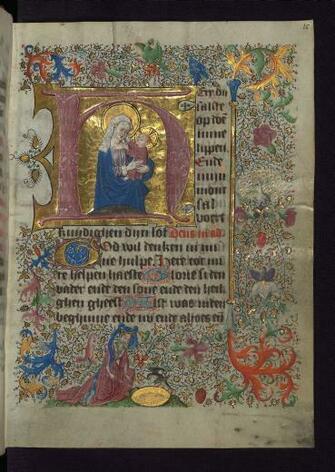 HEre du
salste
op doē
mine
lippen.
Ende
mijn
mont
sal
voert
kundighen dijn lof Deus in ad
God wil denken in mi
ne hulpe. Here tot mi
te helpen haeste Glorie si den
vader ende den sone ende den heili
ghen gheest Als it was inden
beghinne ende nu ende altoes en